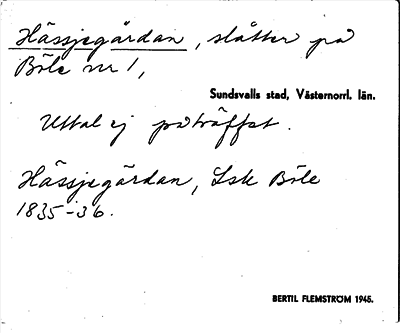 Hässjegårdan, slåtter på
Böle nr 1,
Sundsvalls stad, Västernorrl. län.
Uttal ej påträffat.
Hässjegärdan, Lsk Böle
1835-36.
BERTIL FLEMSTRÖM 1945.